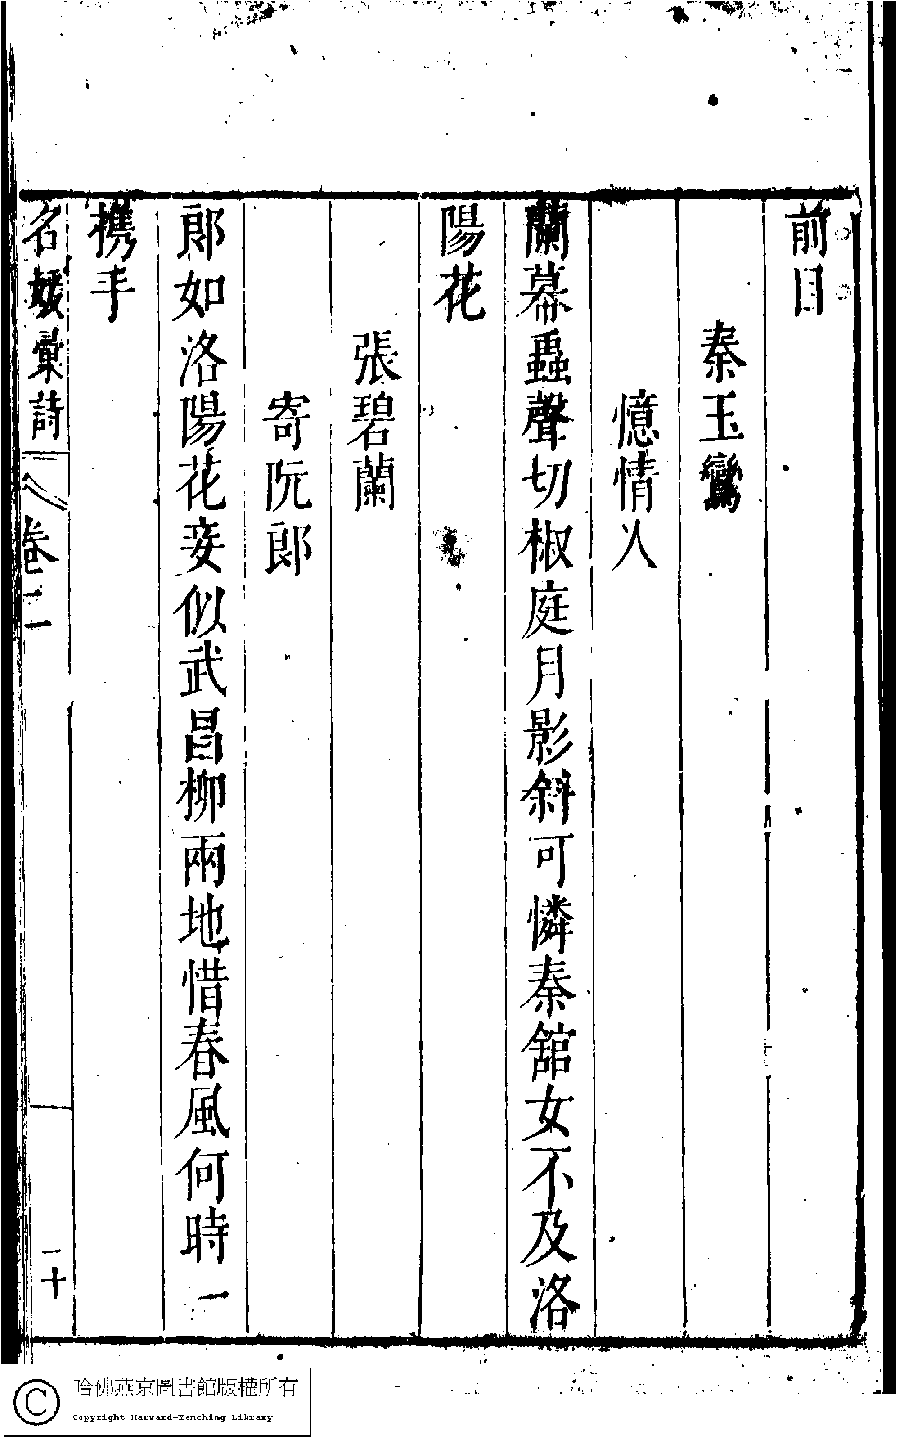 前目
秦玉鸞
憶情人
蘭幕蟲聲切椒庭月影斜可憐秦舘女不及洛
陽花
張碧蘭
寄阮郎
郎如洛陽花妾似武昌柳兩地惜春風何時一
携手
名媛彙詩 卷二 二十
哈佛燕京圖書館版權所有
Copyright Harvard-Yenching Library